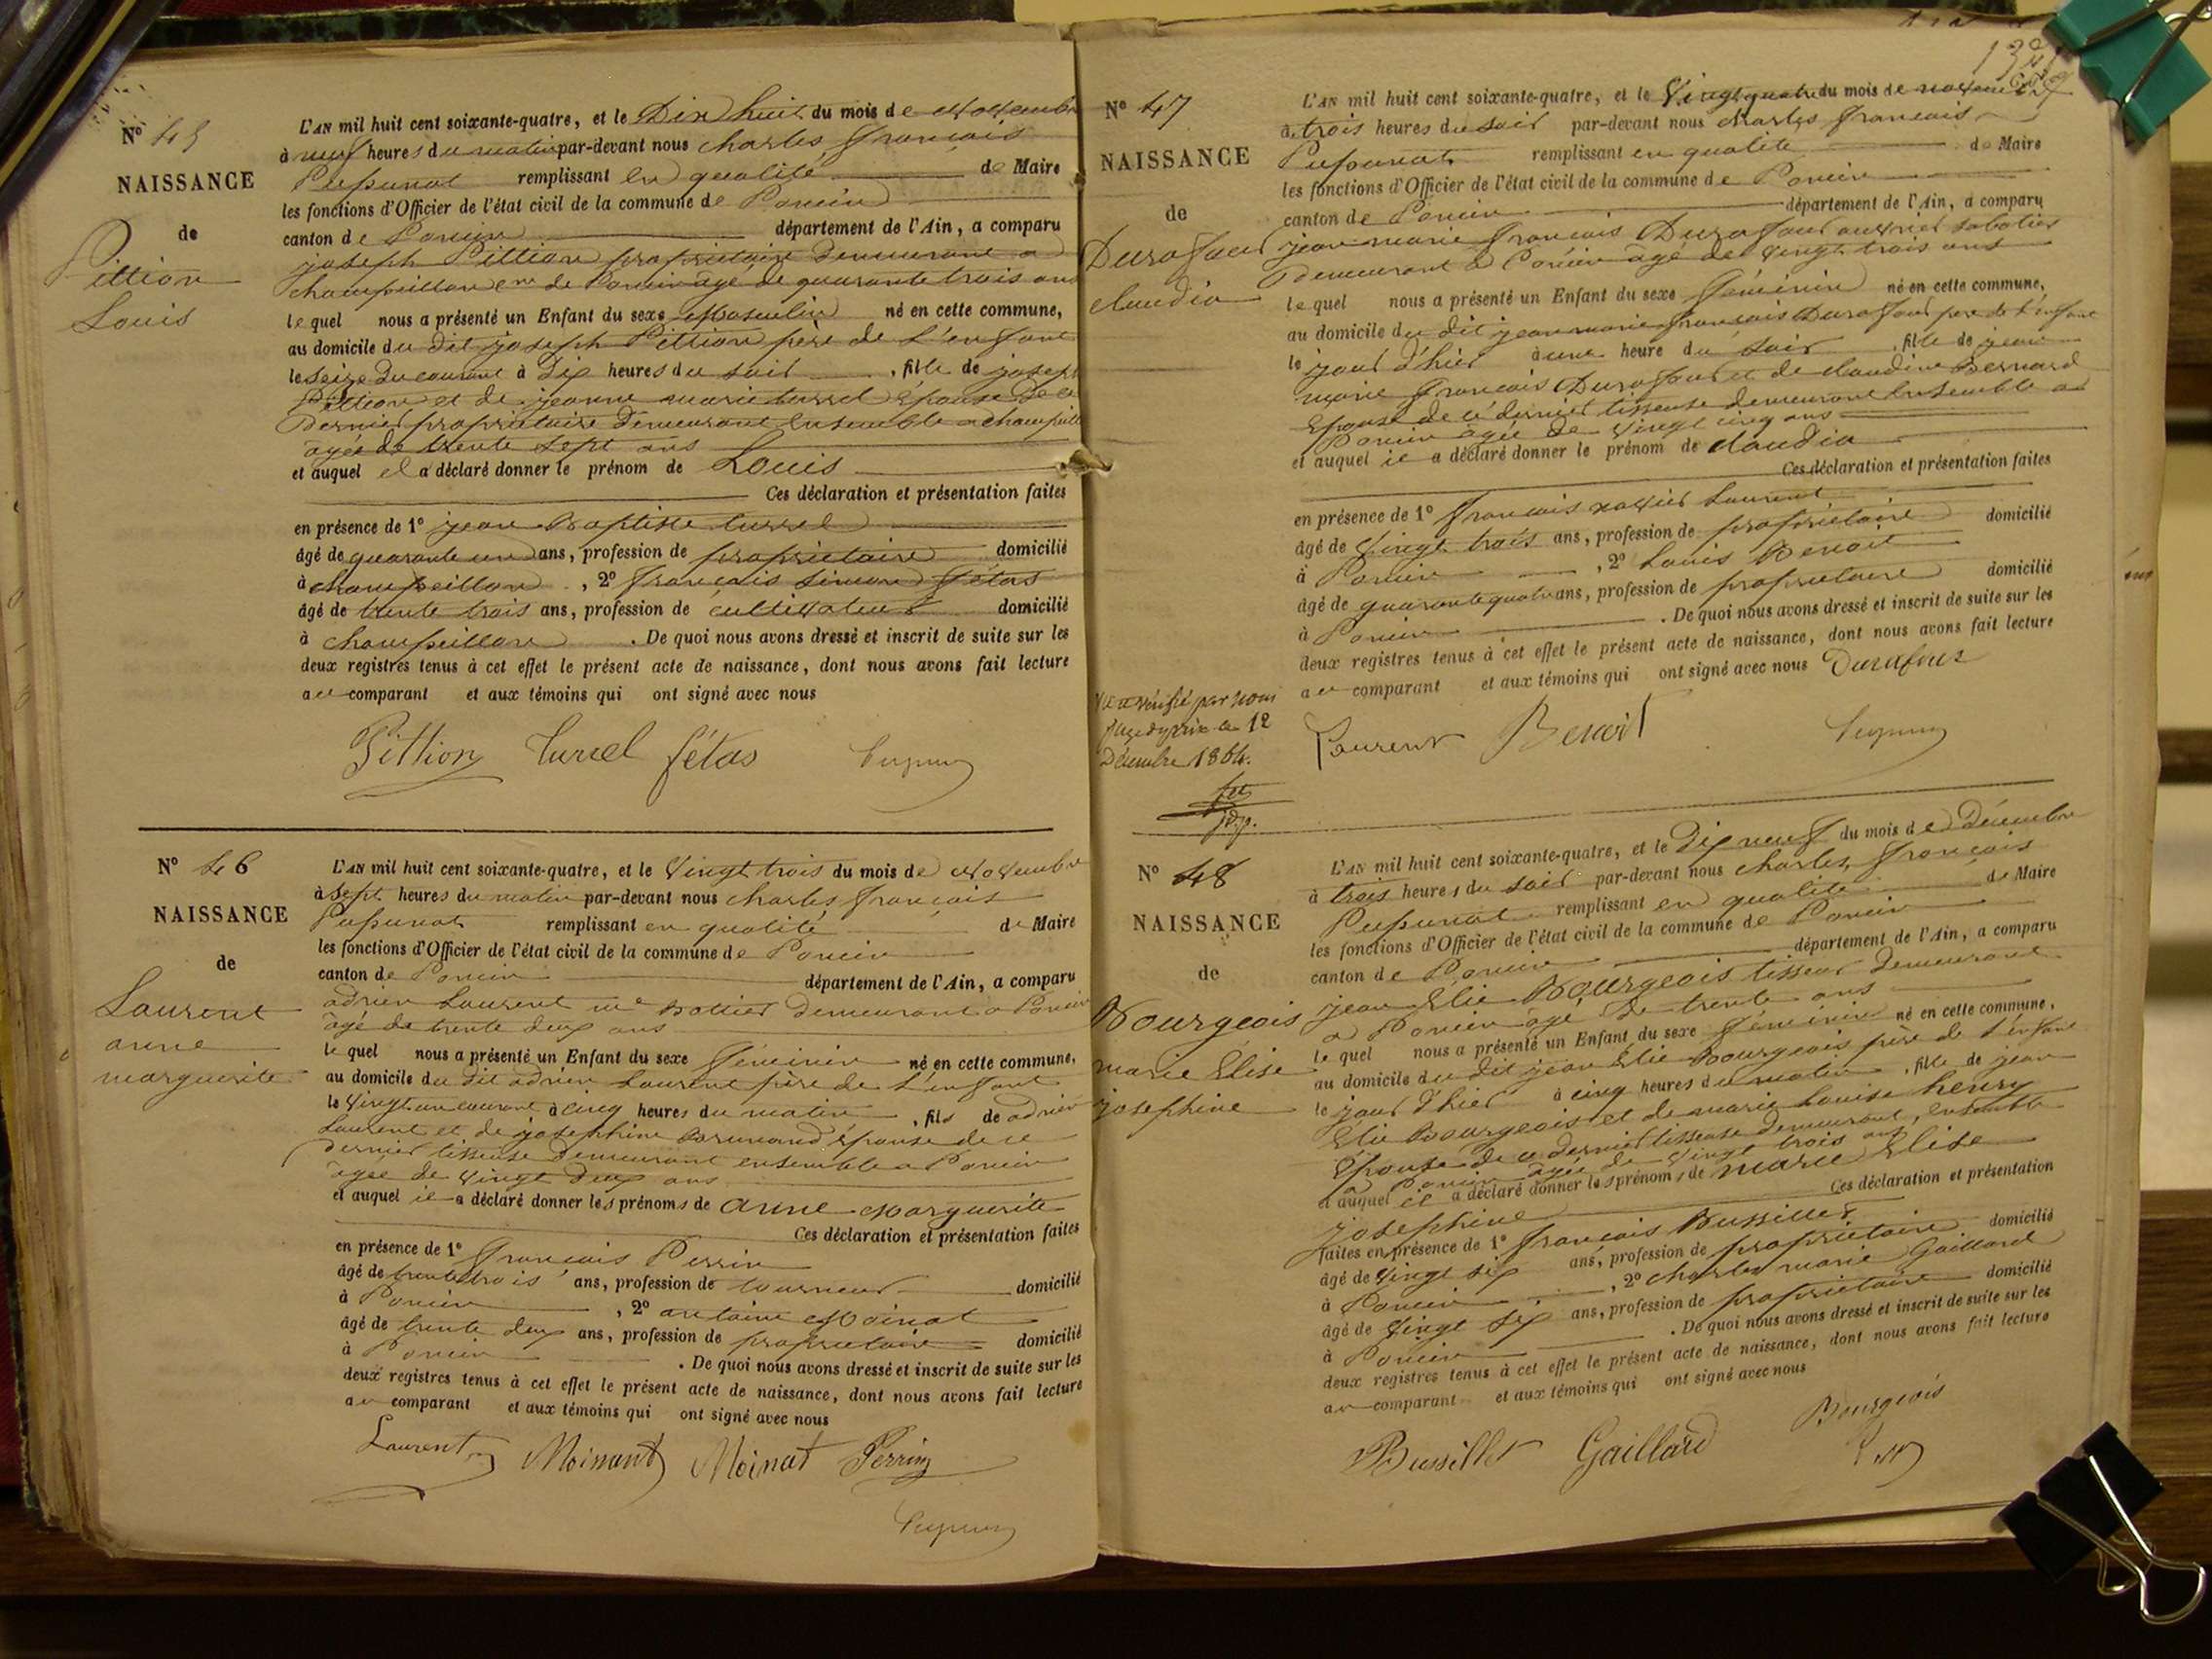 N° 45
NAISSANCE
de
Pittion
Louis
L'AN mil huit cent soixante-quatre, et le Dix huit du mois de Novembre
à neuf heures du matin par-devant nous charles françois
Pupunat remplissant en qualité de Maire
les fonctions d'Officier de l'état civil de la commune de Poncin
canton de Poncin département de l'Ain, a comparu
joseph Pittion propriétaire demeurant a
champeillon cne de Poncin âgé de quarante trois ans
lequel nous a présenté un Enfant du sexe Masculin né en cette commune,
au domicile du dit joseph Pittion père de l'enfant
le seize du courant à dix heures du soir , fils de joseph
Pittion et de jeanne marie turrel épouse de ce
dernier propriétaire demeurant ensemble a champeillon
agée de trente sept ans
et auquel il a déclaré donner le prénom de Louis
Ces déclaration et présentation faites
en présence de 1° jean Baptiste turrel
âgé de quarante un ans, profession de propriétaire domicilié
à champeillon , 2° françois simon fétas
âgé de trente trois ans, profession de cultivateur domicilié
à champeillon . De quoi nous avons dressé et inscrit de suite sur les
deux registres tenus à cet effet le présent acte de naissance, dont nous avons fait lecture
au comparant et aux témoins qui ont signé avec nous
Pittion turrel fétas
N° 46
NAISSANCE
de
Laurent
anne
marguerite
L'AN mil huit cent soixante-quatre, et le Vingt trois du mois de Novembre
à sept heures du matin par-devant nous charles françois
Pupunat remplissant en qualité de Maire
les fonctions d'Officier de l'état civil de la commune de Poncin
canton de Poncin département de l'Ain, a comparu
adrien Laurent demeurant a Poncin
âgé de trente deux ans
lequel nous a présenté un Enfant du sexe féminin né en cette commune,
au domicile du dit adrien Laurent père de l'enfant
le vingt un courant à cinq heures du matin , fils de adrien
Laurent et de josephine Brunand épouse de ce
dernier tisseuse demeurant ensemble a Poncin
agée de vingt deux ans
et auquel il a déclaré donner les prénoms de anne Marguerite
Ces déclaration et présentation faites
en présence de 1° françois Perrin
âgé de trente trois ans, profession de tourneur domicilié
à Poncin , 2° antoine Moinat
âgé de trente deux ans, profession de propriétaire domicilié
à Poncin . De quoi nous avons dressé et inscrit de suite sur les
deux registres tenus à cet effet le présent acte de naissance, dont nous avons fait lecture
au comparant et aux témoins qui ont signé avec nous
Laurent Moinant Moinat Perrin
N° 47
NAISSANCE
de
Durafour
claudia
L'AN mil huit cent soixante-quatre, et le Vingt quatre du mois de novembre
à trois heures du soir par-devant nous charles françois
Pupunat remplissant en qualité de Maire
les fonctions d'Officier de l'état civil de la commune de Poncin
canton de Poncin département de l'Ain, a comparu
jean marie françois Durafour ouvrier sabotier
demeurant a Poncin âgé de vingt trois ans
lequel nous a présenté un Enfant du sexe féminin né en cette commune,
au domicile du dit jean marie françois Durafour père de l'enfant
le jour d'hier à une heure du soir , fille de jean
marie françois Durafour et de claudine Bernard
épouse de ce dernier tisseuse demeurant ensemble a
Poncin agée de vingt cinq ans
et auquel il a déclaré donner le prénom de claudia
Ces déclaration et présentation faites
en présence de 1° françois xavier Laurent
âgé de vingt trois ans, profession de propriétaire domicilié
à Poncin , 2° Louis Benoit
âgé de quarante quatre ans, profession de propriétaire domicilié
à Poncin . De quoi nous avons dressé et inscrit de suite sur les
deux registres tenus à cet effet le présent acte de naissance, dont nous avons fait lecture
au comparant et aux témoins qui ont signé avec nous Durafour
Laurent Benoit
Vu et vérifié par nous
juge de paix le 12
Décembre 1864.
N° 48
NAISSANCE
de
Bourgeois
marie Elise
josephine
L'AN mil huit cent soixante-quatre, et le Dix neuf du mois de Décembre
à trois heures du soir par-devant nous charles françois
Pupunat remplissant en qualité de Maire
les fonctions d'Officier de l'état civil de la commune de Poncin
canton de Poncin département de l'Ain, a comparu
jean Elie Bourgeois tisseur demeurant
a Poncin âgé de trente ans
lequel nous a présenté un Enfant du sexe féminin né en cette commune,
au domicile du dit jean Elie Bourgeois père de l'enfant
le jour d'hier à cinq heures du matin , fille de jean
Elie Bourgeois et de marie Louise henry
épouse de ce dernier tisseuse demeurant ensemble
a Poncin agée de vingt trois ans
et auquel il a déclaré donner les prénoms de marie Elise
josephine Ces déclaration et présentation
faites en présence de 1° françois Bussillet
âgé de vingt six ans, profession de propriétaire domicilié
à Poncin , 2° charles marie Gaillard
âgé de vingt six ans, profession de propriétaire domicilié
à Poncin . De quoi nous avons dressé et inscrit de suite sur les
deux registres tenus à cet effet le présent acte de naissance, dont nous avons fait lecture
au comparant et aux témoins qui ont signé avec nous
Bussillet Gaillard Bourgeois